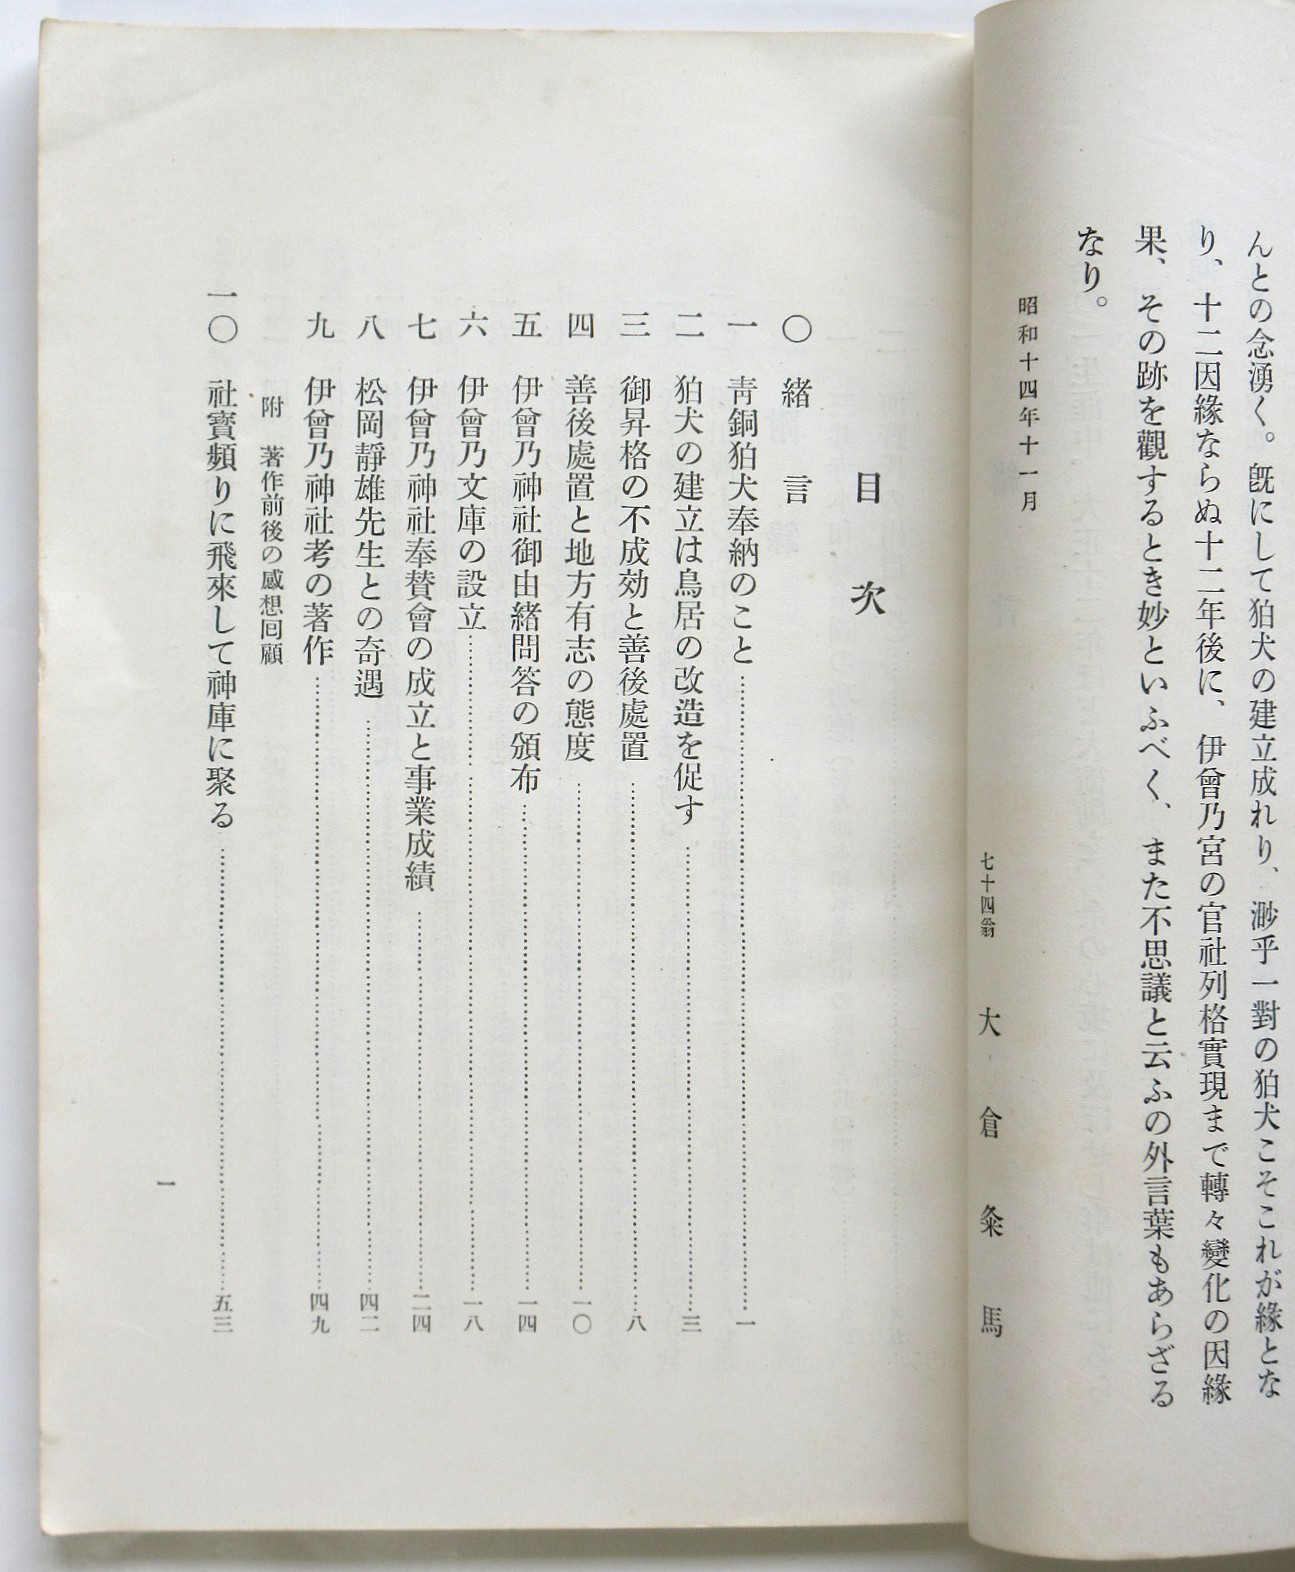 んとの念湧く。旣にして狛犬の建立成れり、渺乎一對の狛犬こそこれが緣とな
り、十二因緣ならぬ十二年後に、伊曾乃宮の官社列格實現まで轉々變化の因緣
果、その跡を觀するとき妙といふべく、また不思議と云ふの外言葉もあらざる
なり。
昭和十四年十一月
七十四翁 大倉粂馬
目次
〇 緖言
一 靑銅狛犬奉納のこと……一
二 狛犬の建立は鳥居の改造を促す……三
三 御昇格の不成効と善後處置……八
四 善後處置と地方有志の態度……一〇
五 伊曾乃神社御由緖問答の頒布……一四
六 伊曾乃文庫の設立……一八
七 伊曾乃神社奉賛會の成立と事業成績……二四
八 松岡靜雄先生との奇遇……四二
九 伊曾乃神社考の著作……四九
附 著作前後の感想囘顧
一〇 社寶頻りに飛來して神庫に聚る……五三
一